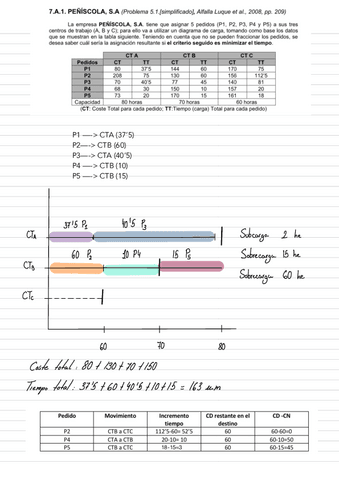 7.A.1. PEÑÍSCOLA, S.A (Problema 5.1.[simplificado], Alfalla Luque et al., 2008, pp. 209)
La empresa PEÑÍSCOLA, S.A. tiene que asignar 5 pedidos (P1, P2, P3, P4 y P5) a sus tres
centros de trabajo (A, B y C); para ello va a utilizar un diagrama de carga, tomando como base los datos
que se muestran en la tabla siguiente. Teniendo en cuenta que no se pueden fraccionar los pedidos, se
desea saber cuál sería la asignación resultante si el criterio seguido es minimizar el tiempo.
CT A CT B CT C
Pedidos CT TT CT TT CT TT
P1 80 37'5 144 60 170 75
P2 208 75 130 60 156 112'5
P3 70 40'5 77 45 140 81
P4 68 30 150 10 157 20
P5 73 20 170 15 161 18
Capacidad 80 horas 70 horas 60 horas
(CT: Coste Total para cada pedido; TT:Tiempo (carga) Total para cada pedido)
P1 —-> CTA (37'5)
P2—-> CTB (60)
P3—-> CTA (40'5)
P4 —-> CTB (10)
P5 —-> CTB (15)
37'5 P1 40'5 P3
CTA Subcarga 2 h
60 P2 10 P4 15 P5 Sobrecarga 15 h
CTB
Sobrecarga 60 h
CTC
60 70 80
Coste total: 80 + 130 + 70 + 150
Tiempo total: 37'5 + 60 + 40'5 + 10 + 15 = 163 u.m
Pedido Movimiento Incremento tiempo CD restante en el destino CD -CN
P2 CTB a CTC 112'5-60= 52'5 60 60-60=0
P4 CTA a CTB 20-10= 10 60 60-10=50
P5 CTB a CTC 18-15=3 60 60-15=45